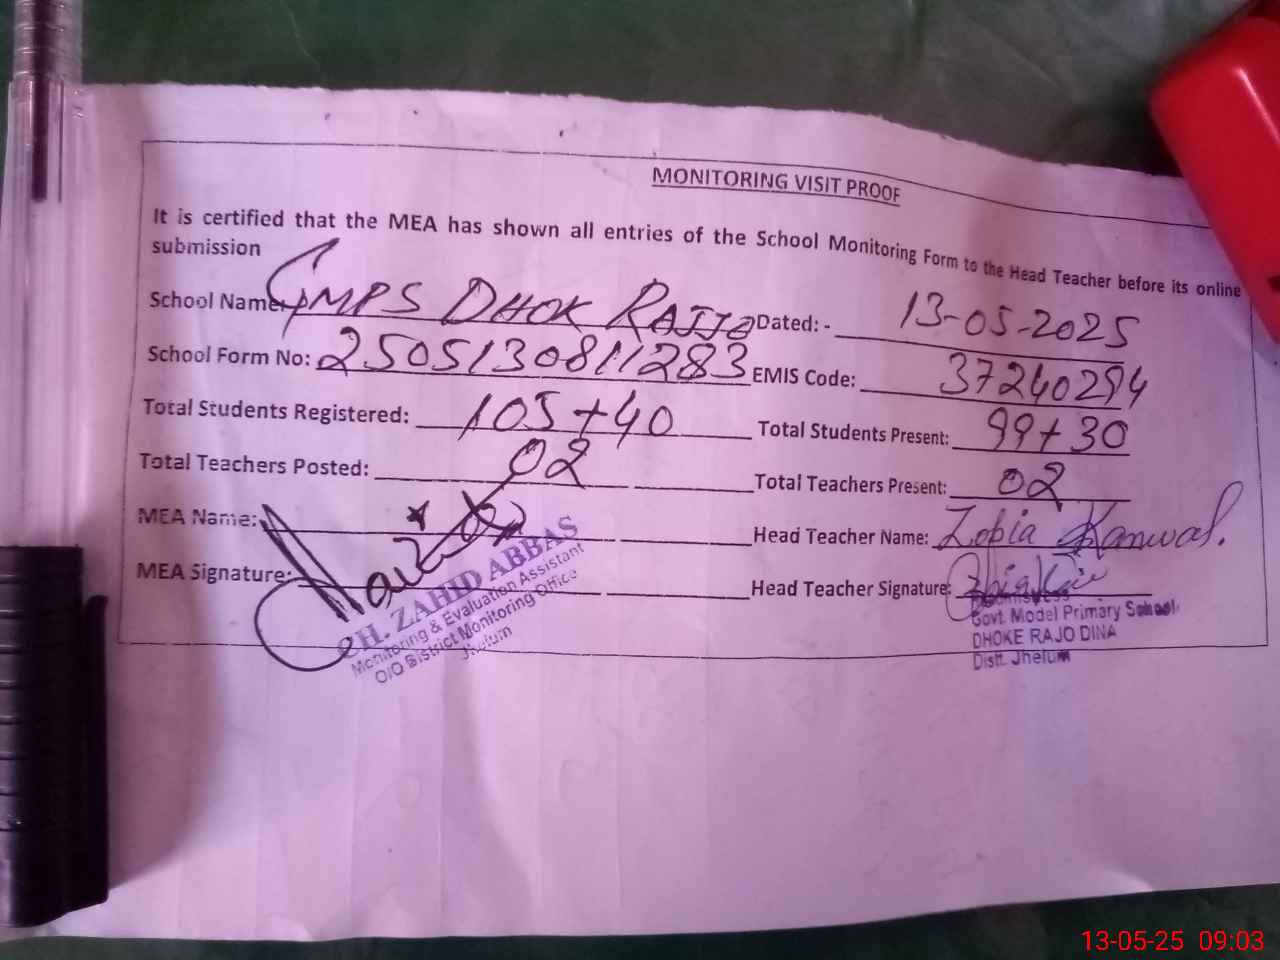 MONITORING VISIT PROOF
It is certified that the MEA has shown all entries of the School Monitoring Form to the Head Teacher before its online
submission
School Name: GMPS DHOK RAJJO Dated: - 13-05-2025
School Form No: 2505130811283 EMIS Code: 37240294
Total Students Registered: 105+40 Total Students Present: 99+30
Total Teachers Posted: 02 Total Teachers Present: 02
MEA Name: Head Teacher Name: Zobia Kanwal.
MEA Signature: Head Teacher Signature:
CH. ZAHID ABBAS
Monitoring & Evaluation Assistant
O/O District Monitoring Office
Jhelum
Govt. Model Primary School
DHOKE RAJO DINA
Distt. Jhelum
13-05-25 09:03